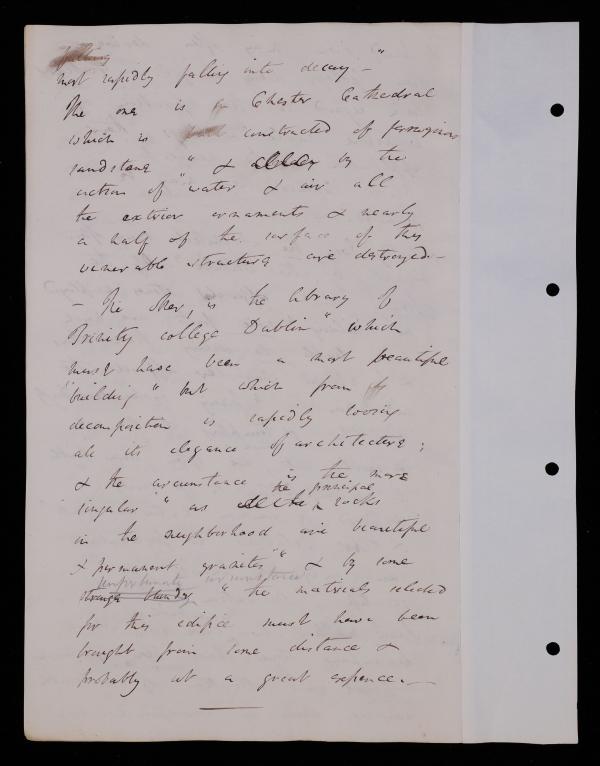 falling
most rapidly falling into decay –"
The one is Chester Cathedral
which is constructed of ferruginous
sandstone " & by the
action of " water & air all
the exterior ornaments & nearly
a half of the surface of this
venerable structure are destroyed. –
– The other, "is the library of
Trinity college Dublin " which
must have been a most beautiful
"building " but which from its
decomposition is rapidly loosing
all its elegance of architecture ;
& the circumstance is the more
the principal
singular " as rocks
in the neighborhood are beautiful
& permanent granites " " & by some
unfortunate circumstance
strange blunder " the materials selected
for this edifice must have been
brought from some distance &
probably at a great expence. –